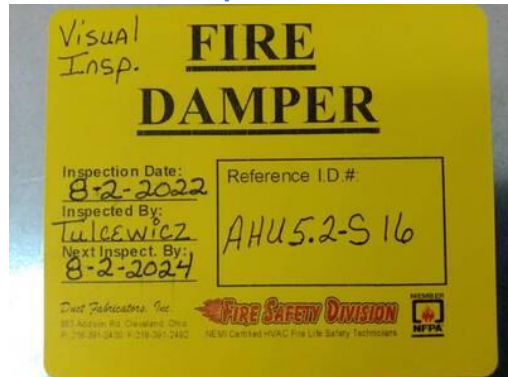 Visual
Insp.
FIRE
DAMPER
Inspection Date:
8-2-2022
Inspected By:
Tulcewicz
Next Inspect. By:
8-2-2024
Reference I.D.#:
AHU5.2-S 16
Duct Fabricators, Inc.
883 Addison Rd. Cleveland, Ohio
P: 216-391-2400 F: 216-391-2492
FIRE SAFETY DIVISION
NEMI Certified HVAC Fire Life Safety Technicians
MEMBER
NFPA